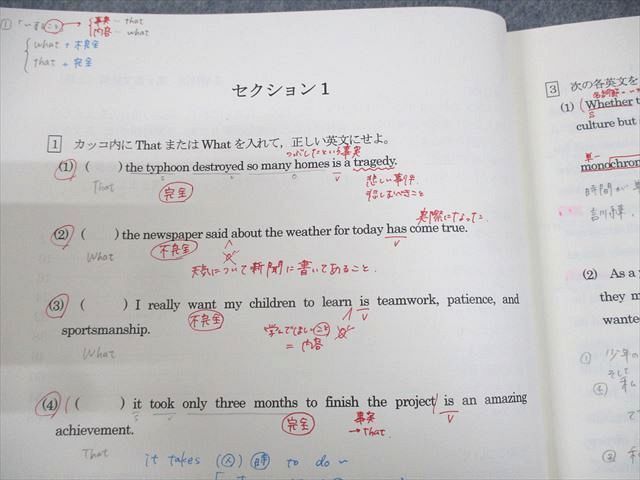 ① 「~すること → 事実 - that
内容 - what
what + 不完全
that + 完全
セクション 1
1 カッコ内に That または What を入れて，正しい英文にせよ。
つぶしたという事実
(1) (　　) the typhoon destroyed so many homes is a tragedy.
S V O V
That
完全
悲しい事件
(2) (　　) the newspaper said about the weather for today has come true.
V
What
不完全
天気について新聞に書いてあること.
(3) (　　) I really want my children to learn is teamwork, patience, and
V
不完全
sportsmanship.
学んでほしいこと
= 内容
What
(4) (　　) it took only three months to finish the project is an amazing
S V V
完全
事実
→ that
achievement.
That
it takes (人) 時 to do ~
3 次の各英文を
(1) (Whether t
S
culture but
monochron
時間が
訓練
(2) As a
they m
wante
① 少年の
そして
④ 私
③ 私